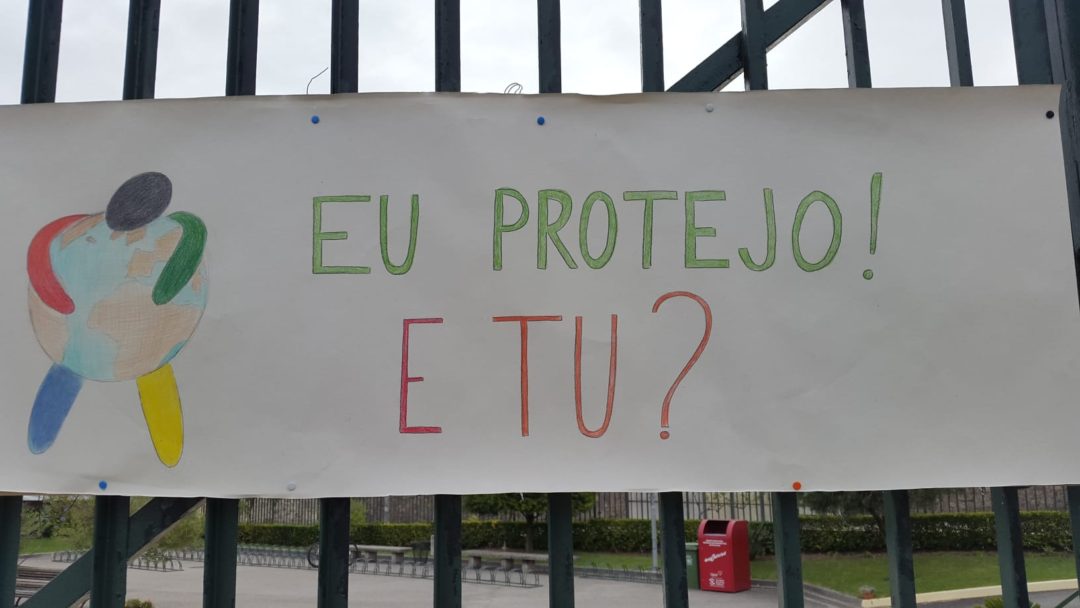 EU PROTEJO!
E TU?